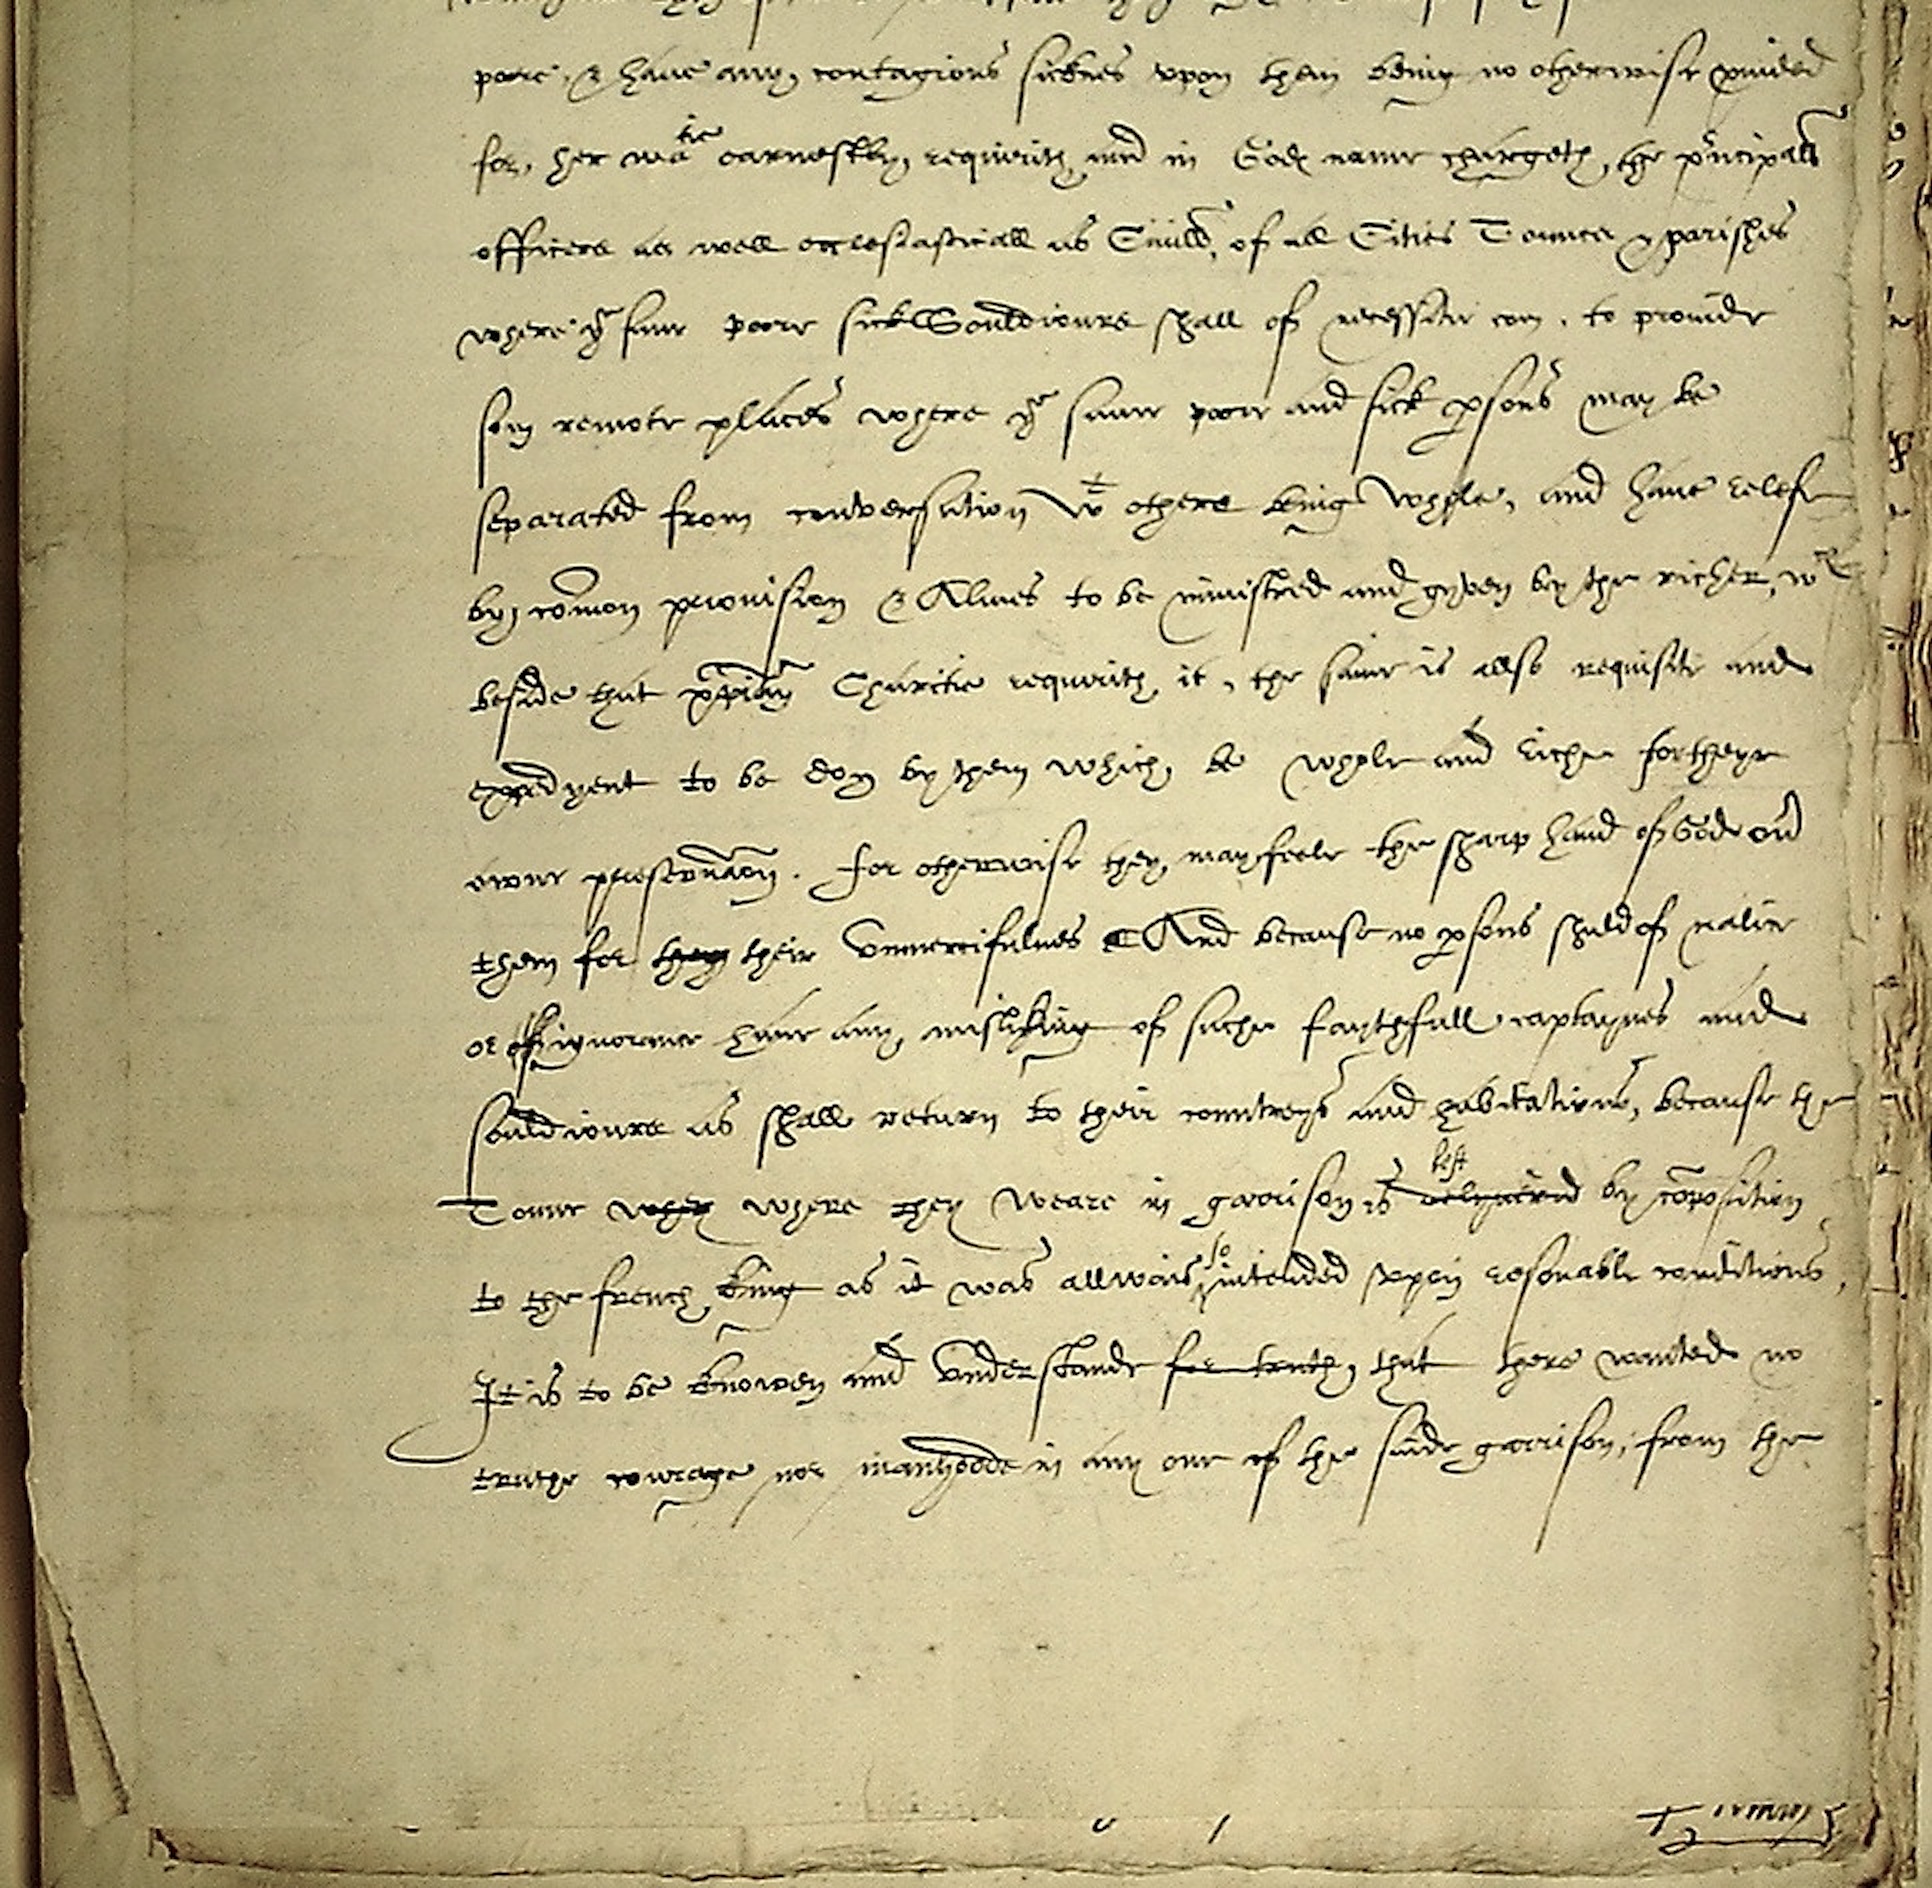 poore, & have any contagious sicknes vpon them being no otherwise pvided
for, her matie earnestly requirith and in Gods name chargeth, the principall
officers as well ecclesiasticall as Ciuill, of all Cities Townes & parishes
where ye same poore sick Souldiours shall of necessitie com, to provide
som remote places where ye same poore and sick psons may be
separated from conversation wt others being whole, and have relefe
by comon provision & Almes to be ministred and gyven by the richer, wch
beside that xpian Charitie requirith it, the same is allso requisite and
expedyent to be don by them which be whole and riche for theyr
owne preseruacon. For otherwise they may feele the sharp hand of God ouer
them for they their vnmercifulnes And because no psons shuld of malice
or of ignorance have any misliking of suche faythfull captaynes and
Souldiours as shall return to their countreys and habitations, because the
Towne when where they weare in garrison is left by composition
to the french king as it was allwais so intended vpon resonable conditions,
It is to be knowen and vnderstande for truth, that there wanted no
truthe courage nor manhoode in any one of the saide garrison, from the